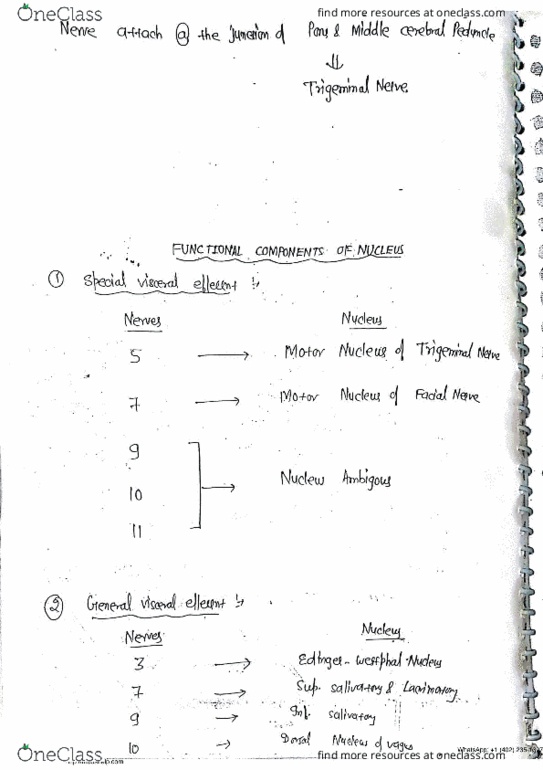 OneClass
find more resources at oneclass.com
Nerve attach @ the junction of Pons & Middle cerebral Peduncle
⇓
Trigeminal Nerve
FUNCTIONAL COMPONENTS OF NUCLEUS
① Special visceral efferent :-
Nerves Nucleus
5 → Motor Nucleus of Trigeminal Nerve
7 → Motor Nucleus of Facial Nerve
9
10 → Nucleus Ambigous
11
② General visceral efferent :-
Nerves Nucleus
3 → Edinger-westphal Nucleus
7 → Sup. salivatory & Lacrimatory
9 → Inf. salivatory
10 → Dorsal Nucleus of vagus
OneClass
find more resources at oneclass.com